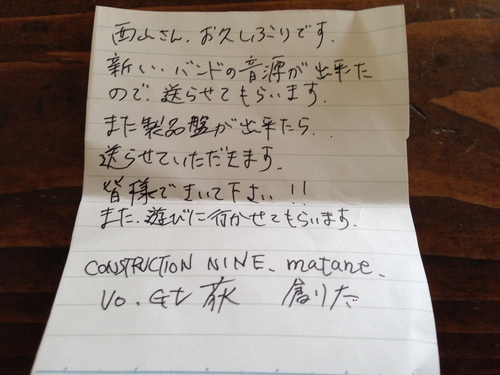 西山さん、お久しぶりです。
新しい、バンドの音源が出来た
ので、送らせてもらいます。
また製品盤が出来たら、
送らせていただきます。
皆様できいて下さい!!
また、遊びに行かせてもらいます。
CONSTRUCTION NINE、matane、
Vo. Gt